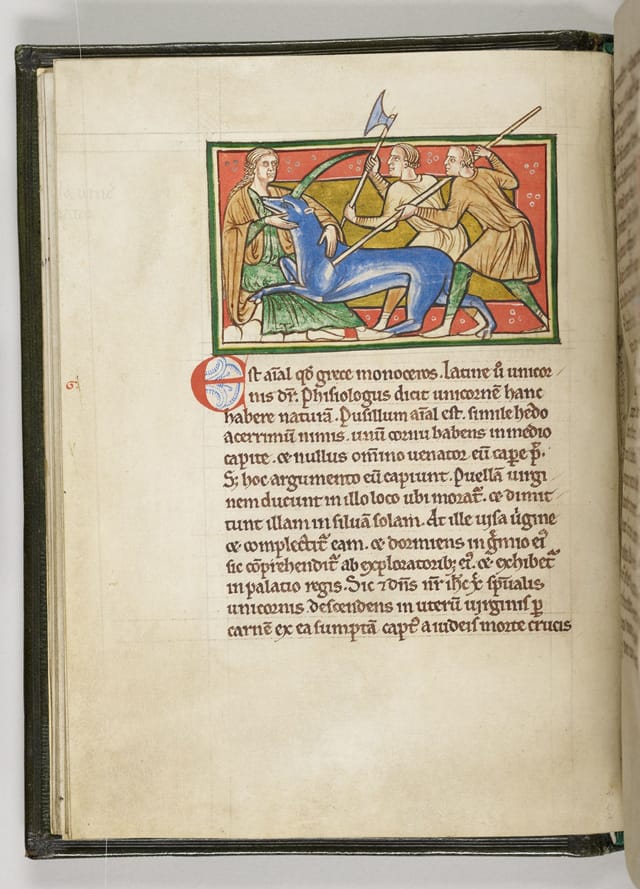 Est aïal qđ grece monoceros. latine ů unicor
nis dr̃. Phisiologus dicit unicornē hanc
habere naturā. Pusillum aïal est. simile hedo
acerrimū nimis. unū cornu habens in medio
capite. et nullus om̄ino uenator eū cape p̄t.
S; hoc argumento eū capiunt. Puellā uirgi
nem ducunt in illo loco ubi morat̃. et dimit
tunt illam in siluā solam. At ille uisa ůgine
et complectit̃ eam. et dormiens in g̃mio ei᾽
sic cōprehendit̃ ab exploratorib; ei᾽. et exhibet̃
in palatio regis. Sic ⁊ dñs nr̃ ih̅c x̅p̅ sp̅ualis
unicornis. descendens in uterū uirginis p̱
carnē ex ea sumptā capt᾽ a iudeis morte crucis